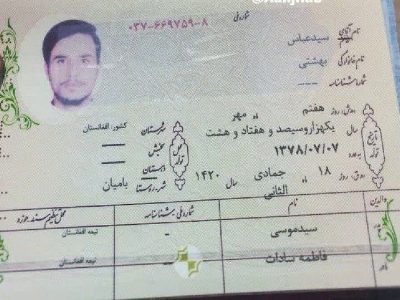 شماره ملی
۰۳۷-۶۶۹۷۵۹-۸
نام سیدعباس
نام خانوادگی بهشتی
شماره شناسنامه ----
روز: هفتم ماه مهر
سال یکهزاروسیصد و هفتاد و هشت
۱۳۷۸/۰۷/۰۷
روز ۱۸ جمادی الثانی سال ۱۴۲۰
تاریخ تولد
شهرستان کشور: افغانستان
بخش —
دهستان —
شهر-روستا: بامیان
محل تولد
والدین
نام
شماره ملی - شناسنامه
محل تنظیم سند، حوزه
سیدموسی
–
تبعه افغانستان
فاطمه سادات
–
تبعه افغانستان